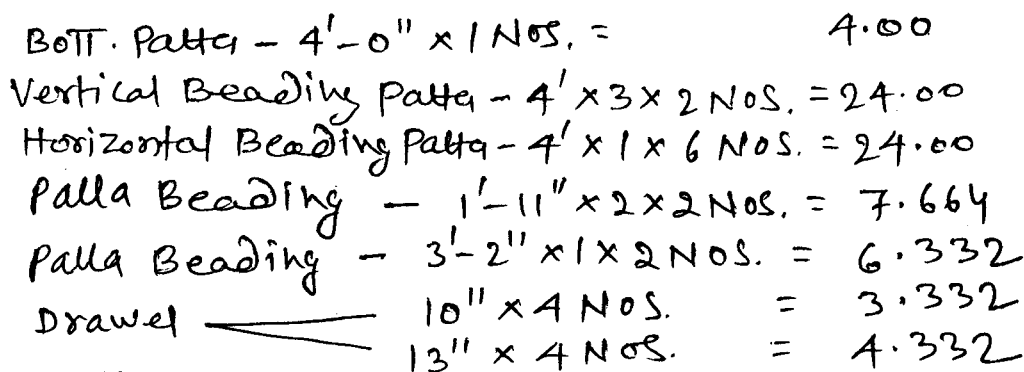 BOTT. Patta - 4'-0" x 1 NOS, = 4.00
Vertical Beading Patta - 4' x 3 x 2 NOS. = 24.00
Horizontal Beading Patta - 4' x 1 x 6 NOS. = 24.00
Palla Beading - 1'-11" x 2 x 2 NOS. = 7.664
Palla Beading - 3'-2" x 1 x 2 NOS. = 6.332
Drawel 10" x 4 NOS. = 3.332
13" x 4 NOS. = 4.332